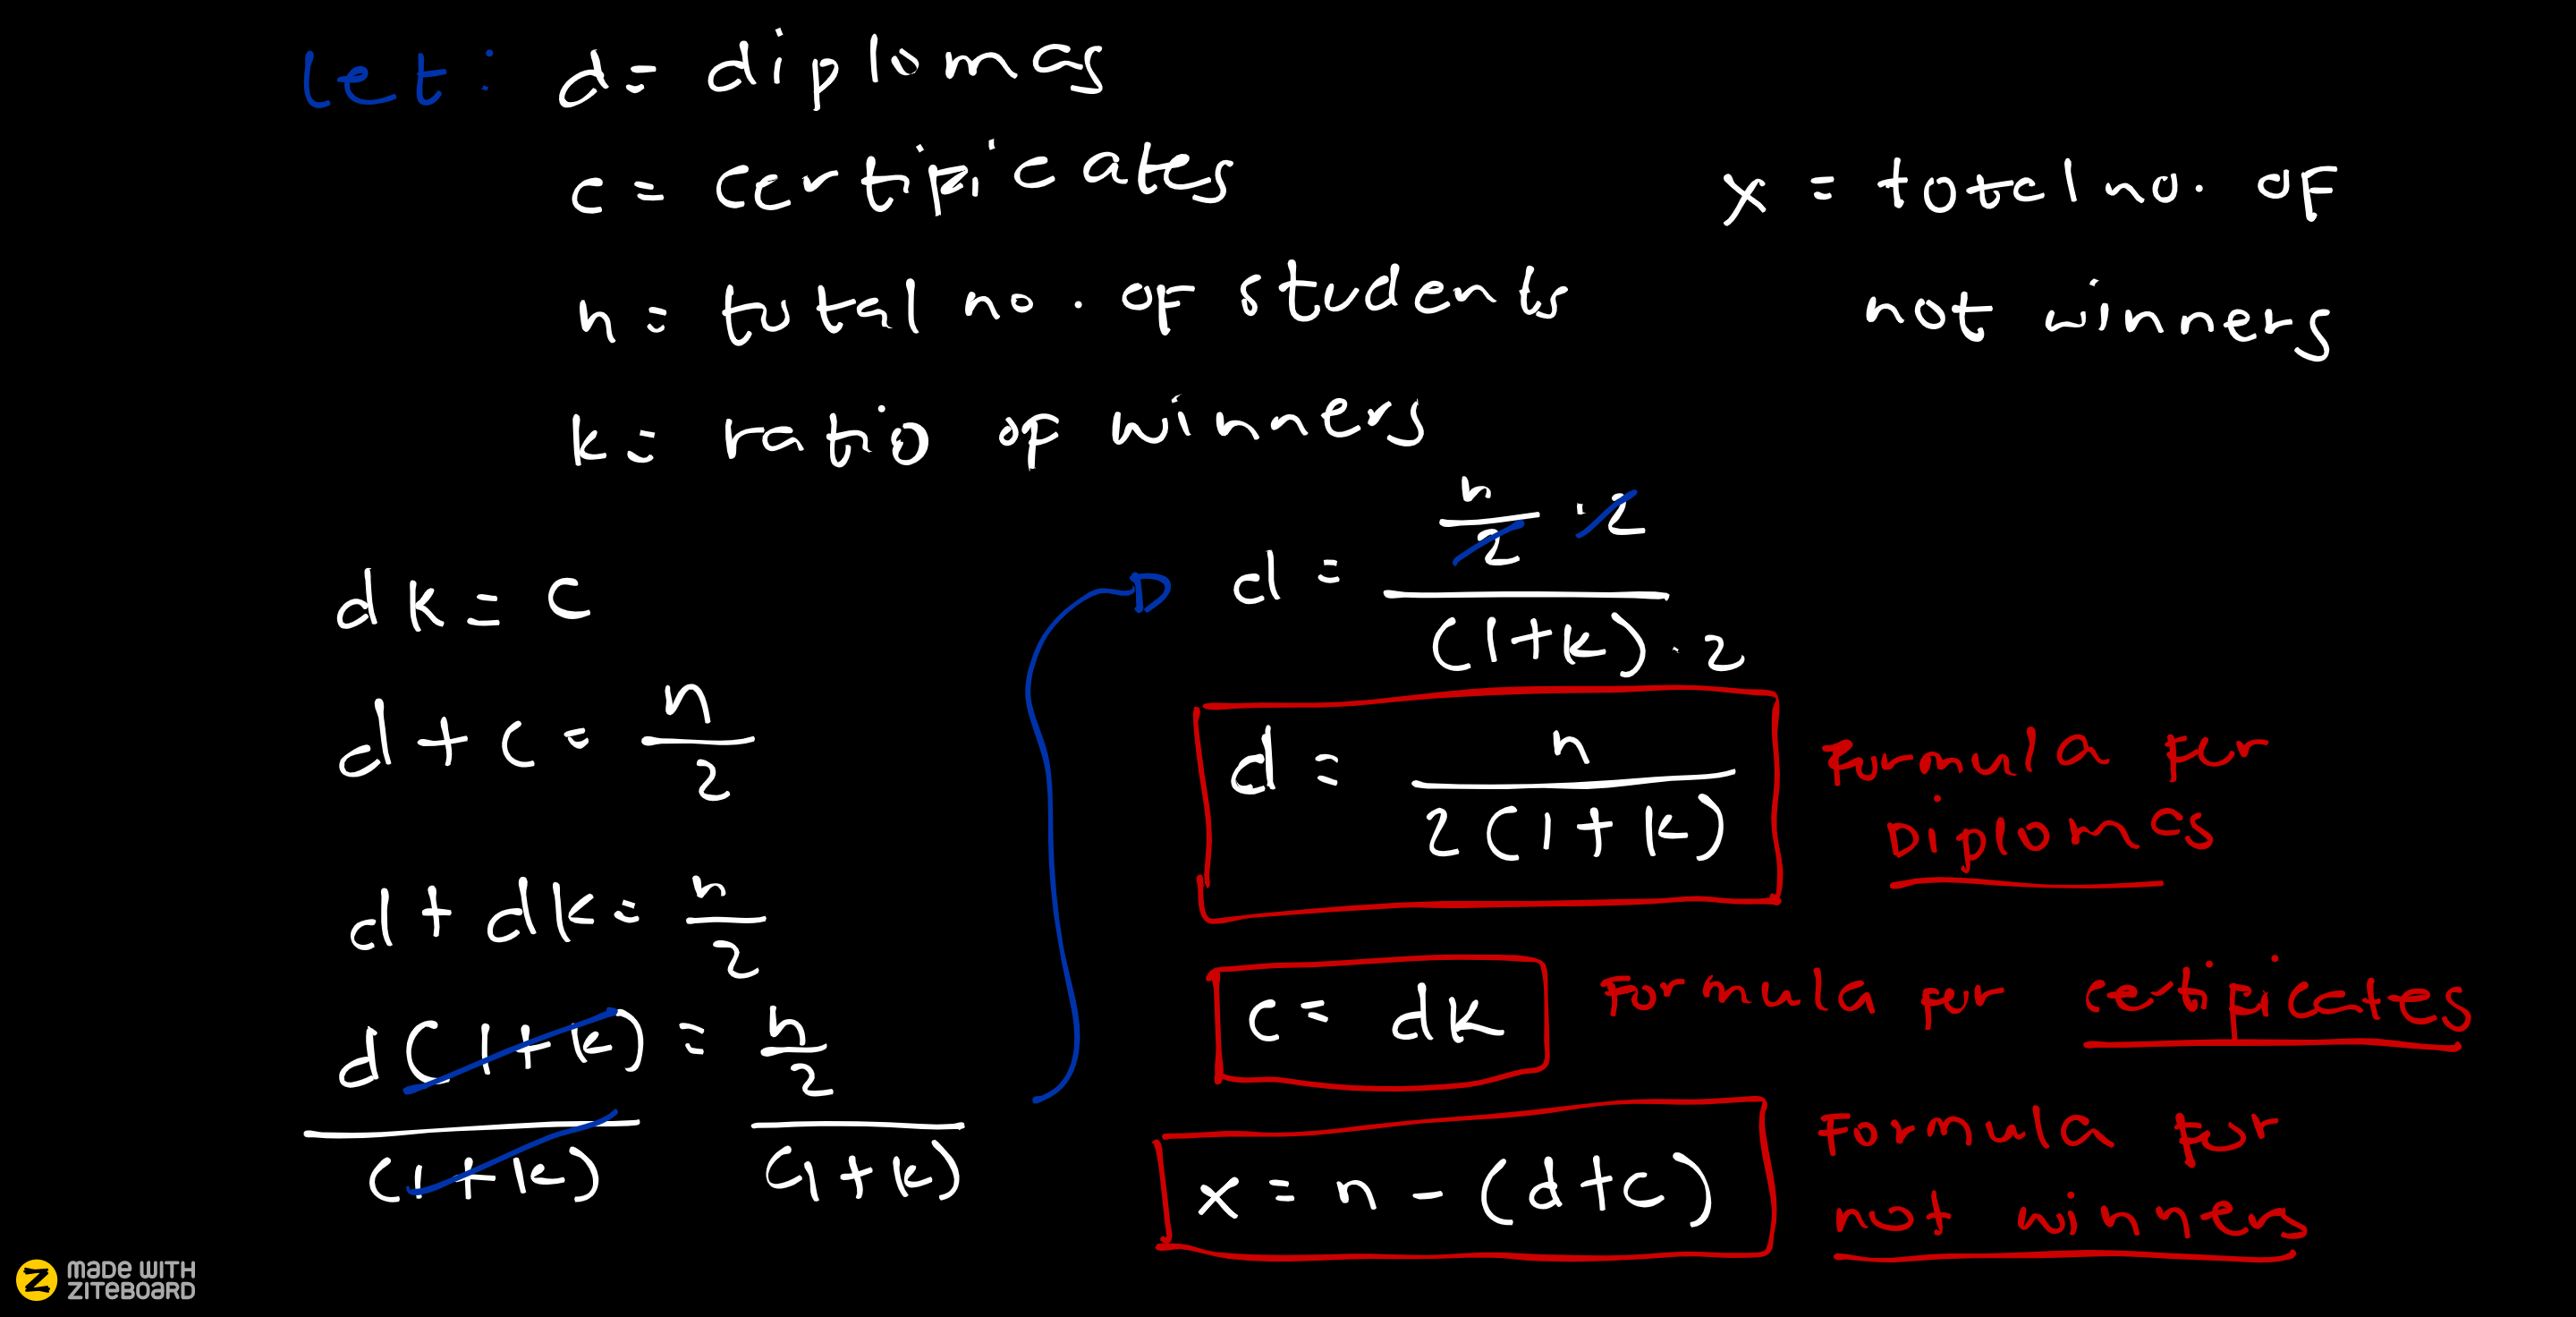 let: d = diplomas
c = certificates
n = total no. of students
k = ratio of winners
x = total no. of
not winners
dk = c
d + c = n/2
d + dk = n/2
d(1+k)/(1+k) = n/2/(1+k)
d = n/2 · 2/(1+k) · 2
d = n/2(1+k)
Formula for
Diplomas
c = dk
Formula for certificates
x = n - (d+c)
Formula for
not winners
MADE WITH
ZITEBOARD